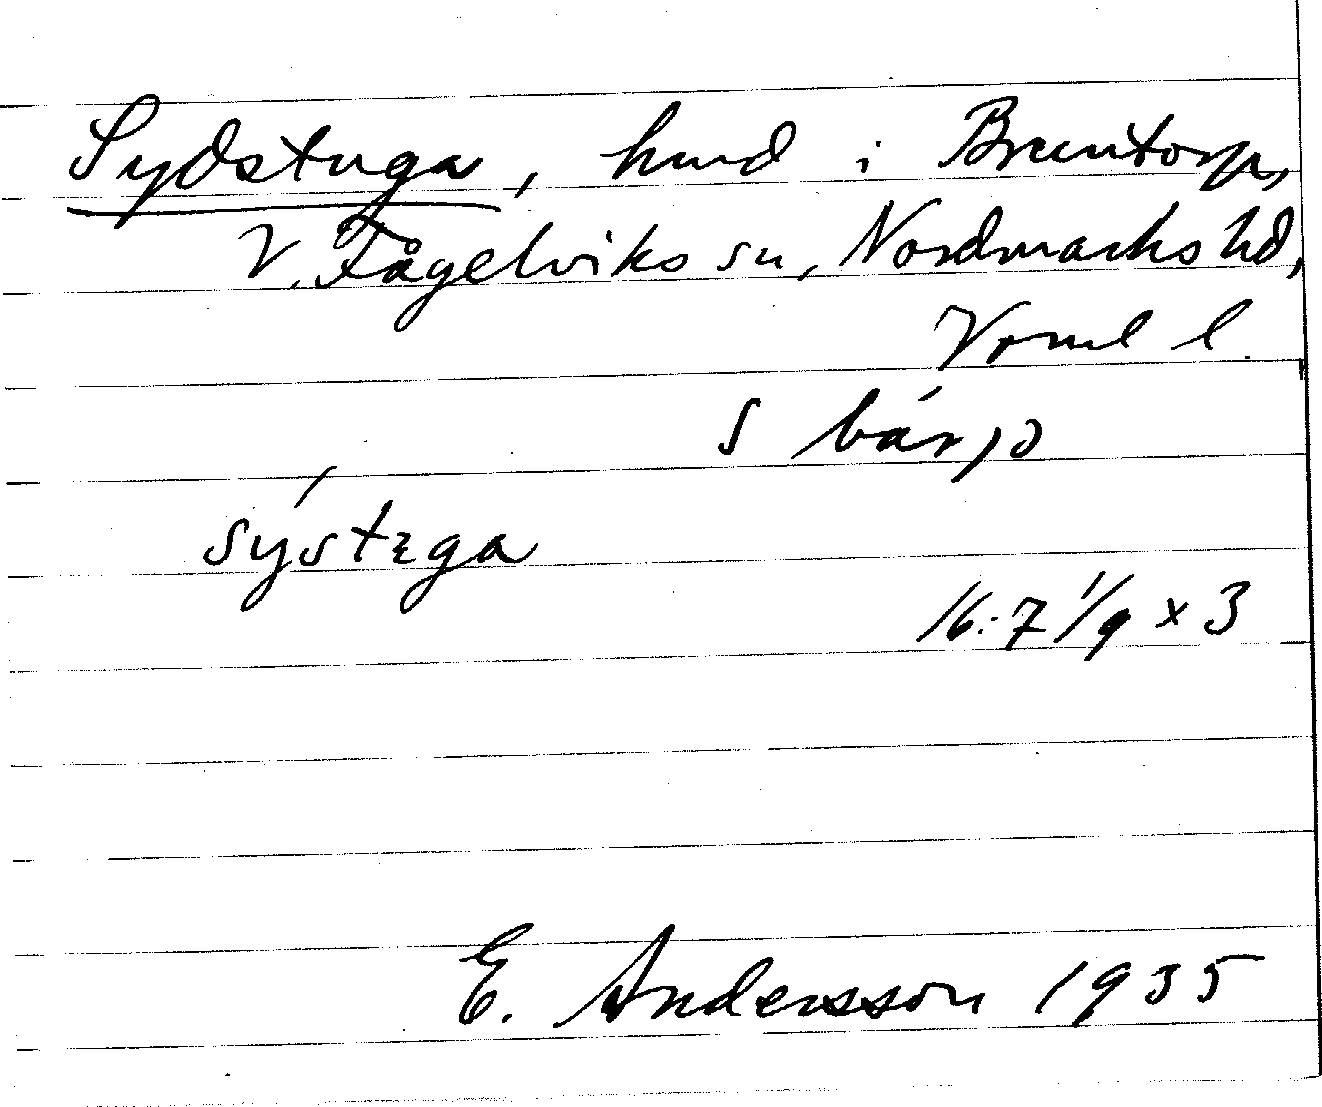 Sydstuga, hmd i Bruntorp,
V. Fågelviks sn, Nordmarks hd,
Vrml l.
S bárjə
sýstɛga
16:7 1/9 x 3
E. Andersson 1935